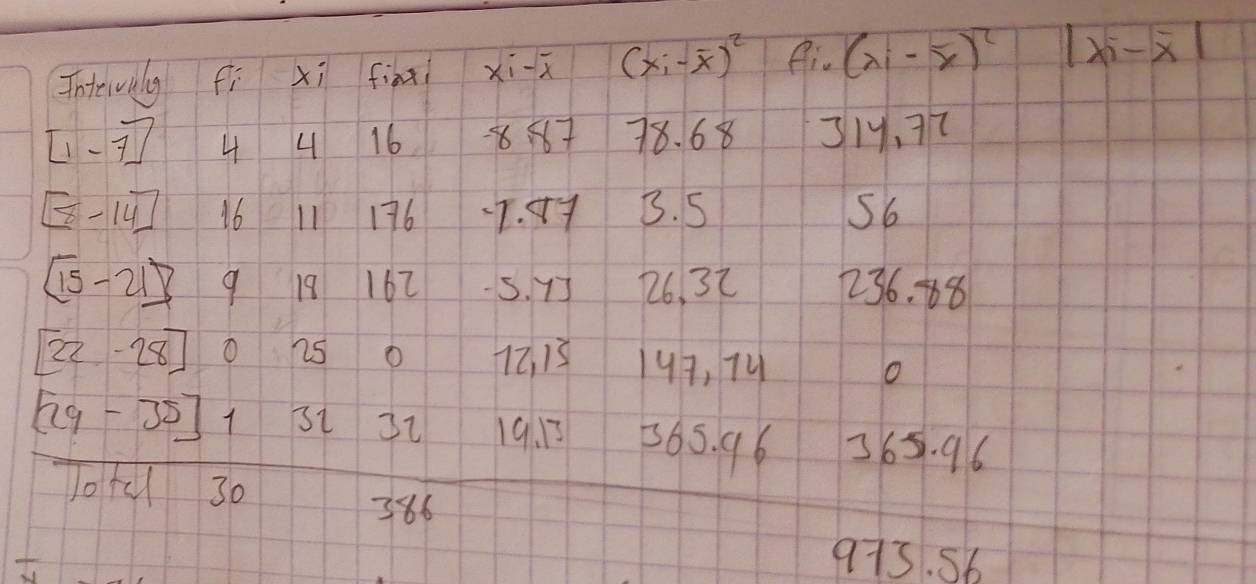 Intervalo fi xi fi·xi xi-x̄ (xi-x̄)² fi.(xi-x̄)² |xi-x̄|
[1-7] 4 4 16 -8.87 78.68 314,72
[8-14] 16 11 176 -1.87 3.5 56
[15-21] 9 18 162 -5.13 26,32 236.88
[22-28] 0 25 0 12,13 147,14 0
[29-35] 1 32 32 19,13 365.96 365.96
Total 30 386
973.56